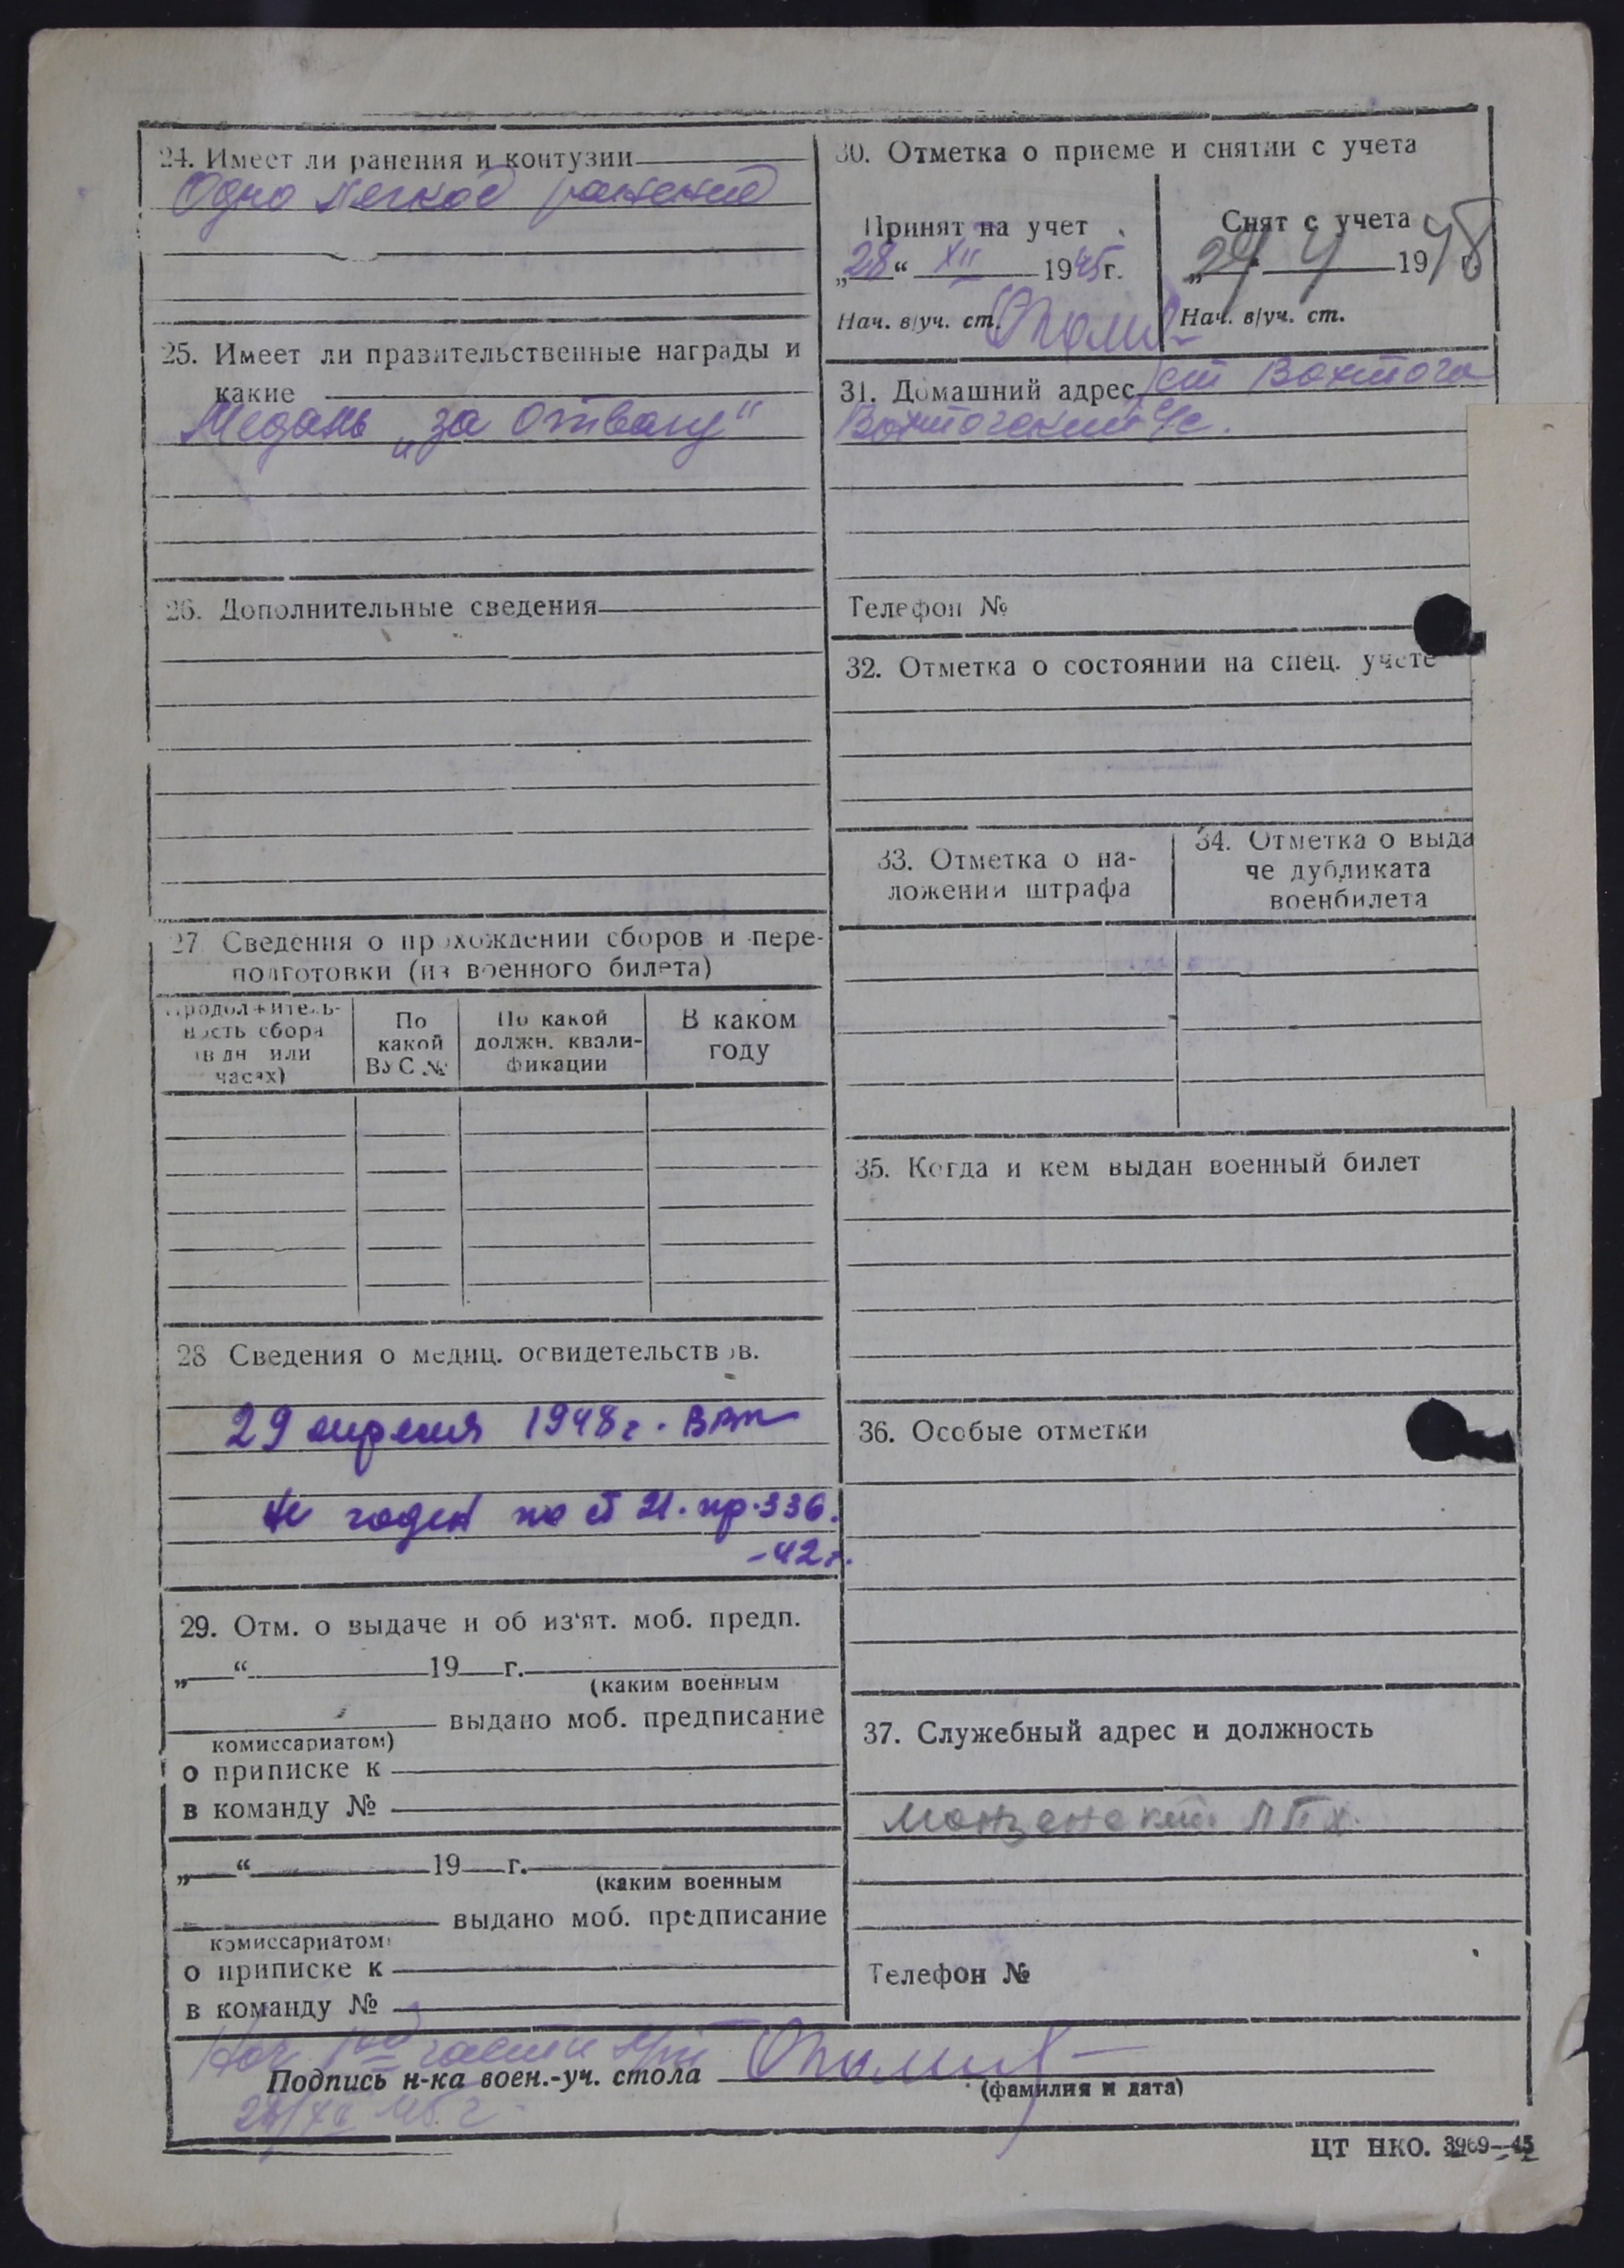 24. Имеет ли ранения и контузии
Одно легкое ранение
25. Имеет ли правительственные награды и
какие
Медаль „за отвагу"
26. Дополнительные сведения
27 Сведения о прохождении сборов и пере-
подготовки (из военного билета)
Продолжитель-
ность сбора
(в дн или
часах)
По
какой
ВУС №
По какой
должн. квали-
фикации
В каком
году
28 Сведения о медиц. освидетельствов.
29 апреля 1948 г.
Не годен по ст 21. пр. 336.
-42 г.
29. Отм. о выдаче и об из'ят. моб. предп.
„ “ 19 г.
(каким военным
выдано моб. предписание
комиссариатом)
о приписке к
в команду №
„ “ 19 г.
(каким военным
выдано моб. предписание
комиссариатом)
о приписке к
в команду №
30. Отметка о приеме и снятии с учета
Принят на учет
„28“ XII 1945 г.
Нач. в/уч. ст.
Снят с учета
1948
Нач. в/уч. ст.
31. Домашний адрес ст Вохтога
Вохтогский с/с.
Телефон №
32. Отметка о состоянии на спец. учете
33. Отметка о на-
ложении штрафа
34. Отметка о выда
че дубликата
военбилета
35. Когда и кем выдан военный билет
36. Особые отметки
37. Служебный адрес и должность
Монзенский ЛПХ.
Телефон №
Нач части
Подпись н-ка воен.-уч. стола
(фамилия и дата)
ЦТ НКО. 3969—45